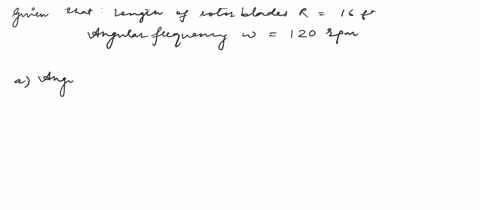 Given that : Length of rotor blades R = 16 ft
Angular frequency ω = 120 rpm
a) Ang